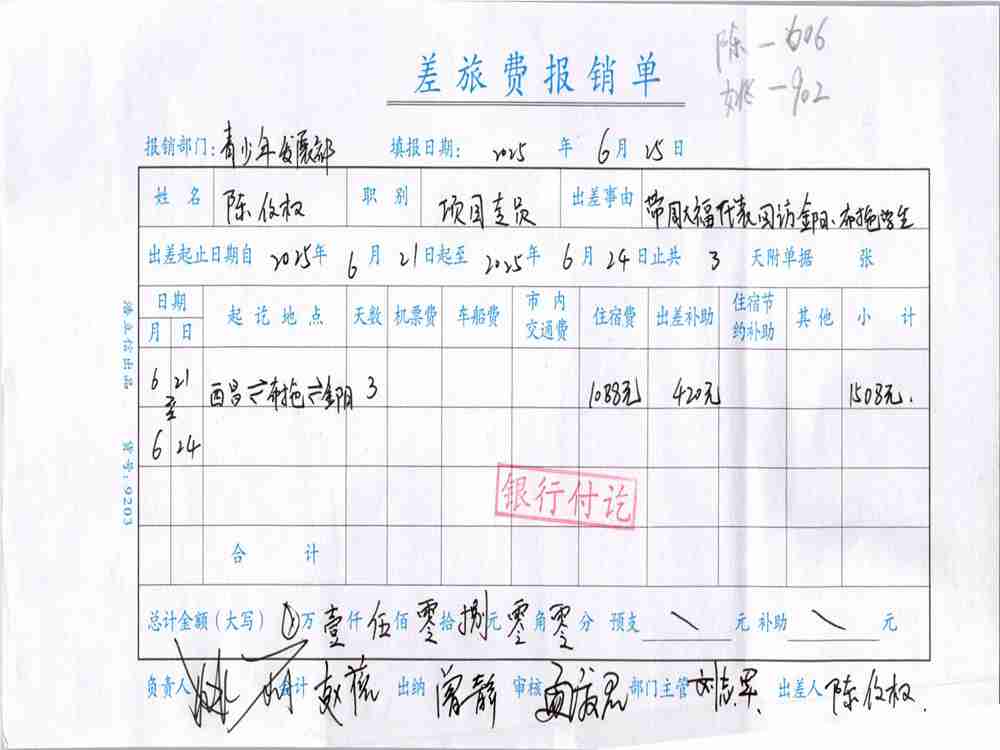 陈一606
姚一902
差旅费报销单
报销部门：青少年发展部 填报日期： 2025 年 6月 25日
姓名 陈仪权 职别 项目专员 出差事由 带周大福代表回访金阳、布拖学生
出差起止日期自 2025年 6月 21日起至 2025年 6月 24日止共 3 天附单据 张
日期 起讫地点 天数 机票费 车船费 市内交通费 住宿费 出差补助 住宿节约补助 其他 小计
月 日
6 21 西昌⇌布拖⇌金阳 3 1088元 420元 1508元.
至
6 24
银行付讫
合计
总计金额（大写） 万 壹仟 伍佰 零拾 捌元 零角 零分 预支 元 补助 元
负责人 会计 赵 出纳 曾静 审核 部门主管 刘志军 出差人 陈仪权
浩立信出品 货号：9203